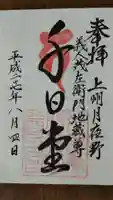 奉拝
上州月夜野
義茂左衛門地蔵尊
千日堂
平成二七年八月四日